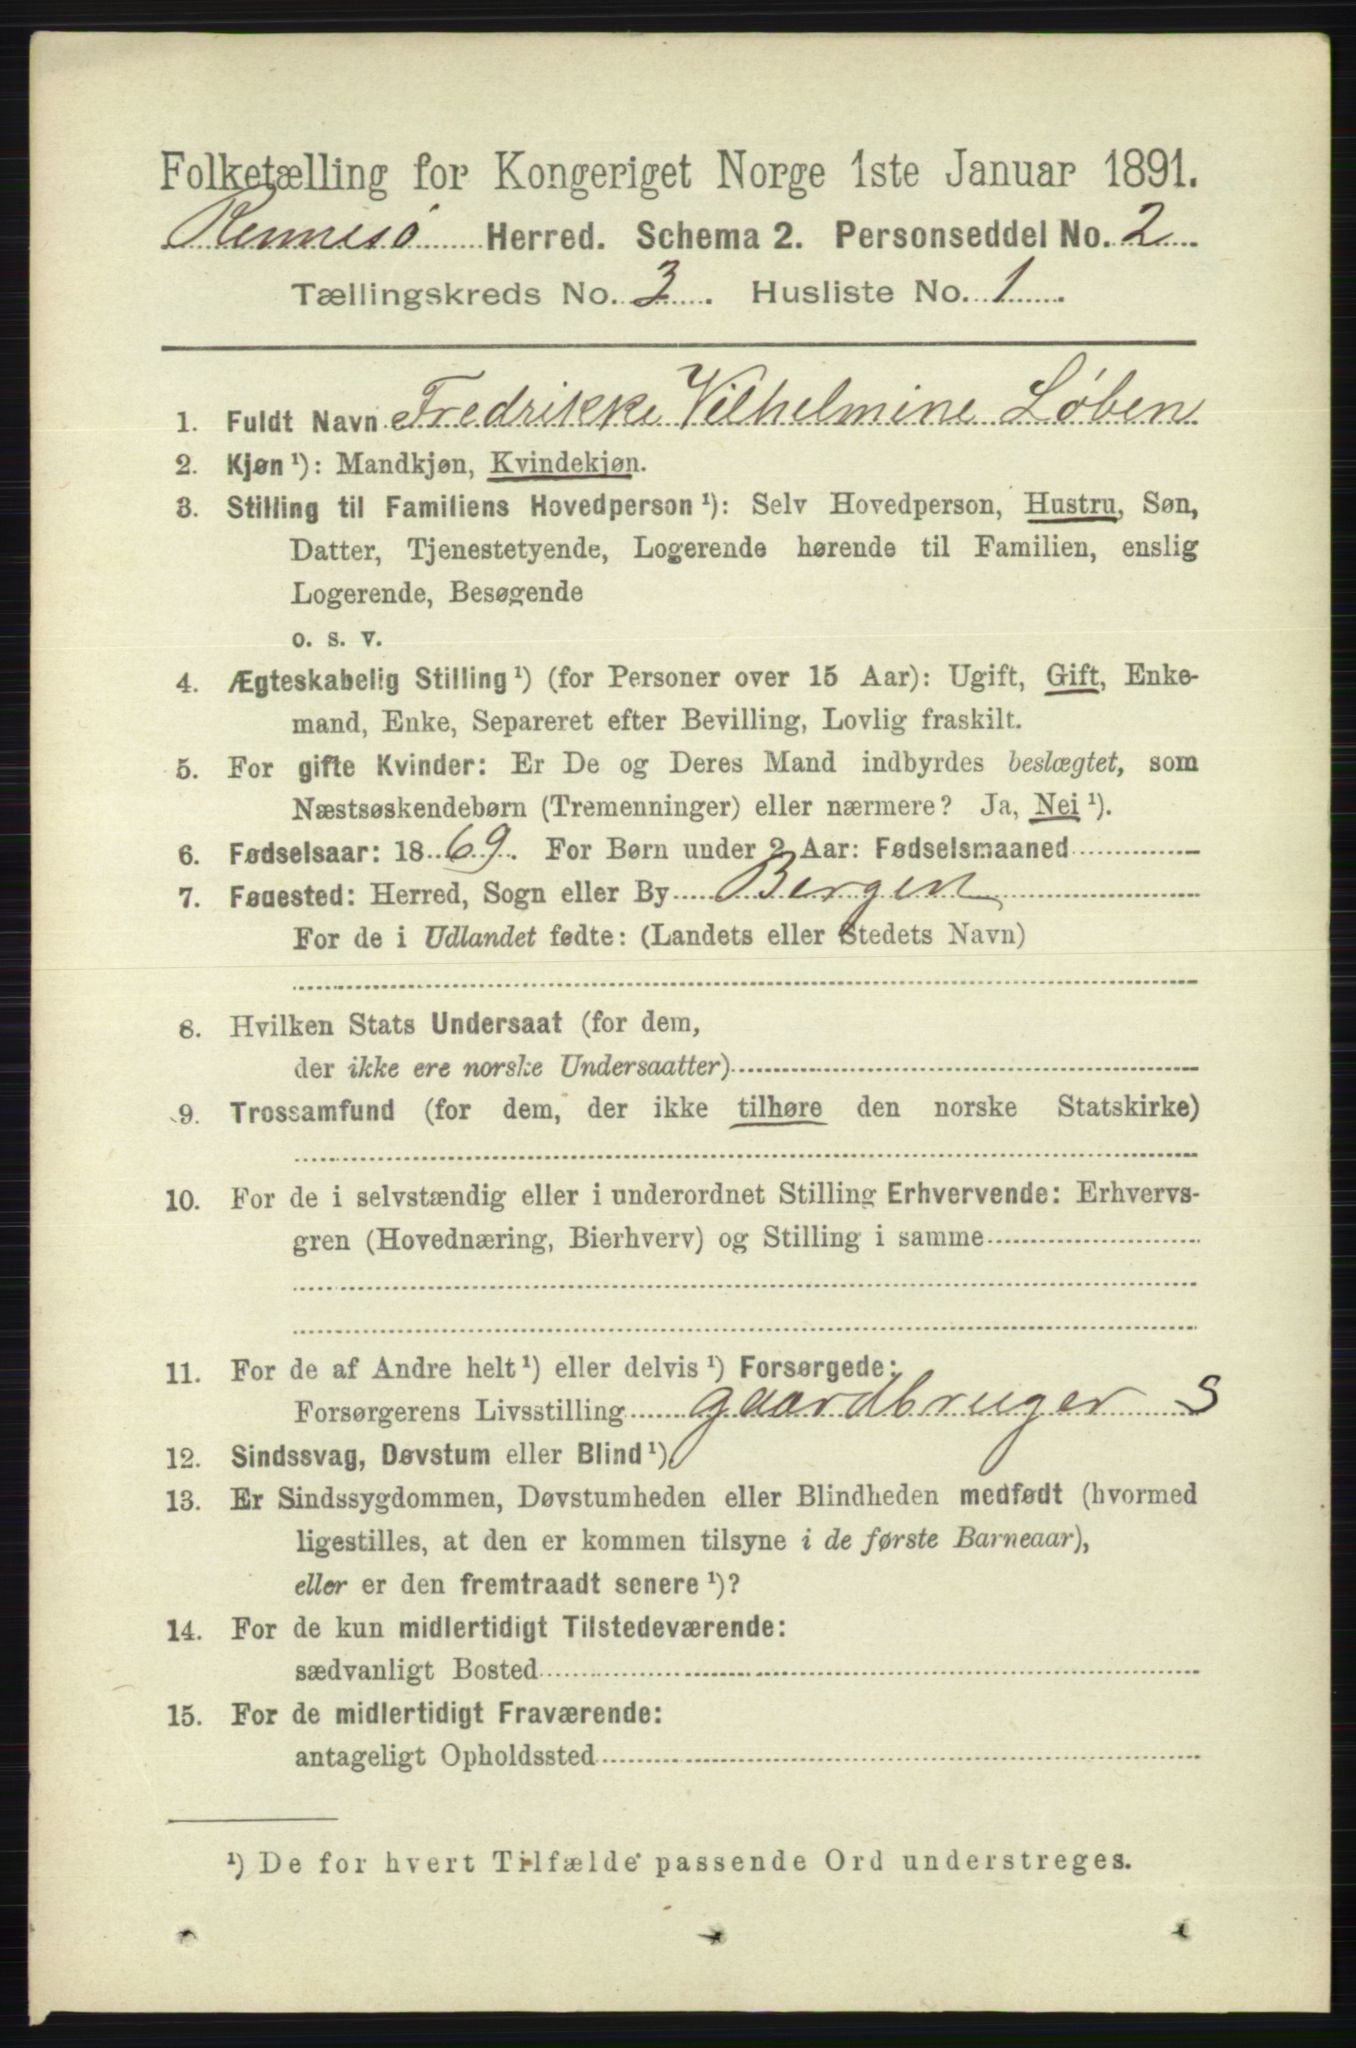 Folketælling for Kongeriget Norge 1ste Januar 1891.
Rennesø Herred. Schema 2. Personseddel No. 2
Tællingskreds No. 3. Husliste No. 1.
1. Fuldt Navn Fredrikke Vilhelmine Løben
2. Kjøn ¹): Mandkjøn, Kvindekjøn.
3. Stilling til Familiens Hovedperson ¹): Selv Hovedperson, Hustru, Søn,
Datter, Tjenestetyende, Logerende hørende til Familien, enslig
Logerende, Besøgende
o. s. v.
4. Ægteskabelig Stilling ¹) (for Personer over 15 Aar): Ugift, Gift, Enke-
mand, Enke, Separeret efter Bevilling, Lovlig fraskilt.
5. For gifte Kvinder: Er De og Deres Mand indbyrdes beslægtet, som
Næstsøskendebørn (Tremenninger) eller nærmere? Ja, Nei ¹).
6. Fødselsaar: 1869. For Børn under 2 Aar: Fødselsmaaned
7. Fødested: Herred, Sogn eller By Bergen
For de i Udlandet fødte: (Landets eller Stedets Navn)
8. Hvilken Stats Undersaat (for dem,
der ikke ere norske Undersaatter)
9. Trossamfund (for dem, der ikke tilhøre den norske Statskirke)
10. For de i selvstændig eller i underordnet Stilling Erhvervende: Erhvervs-
gren (Hovednæring, Bierhverv) og Stilling i samme
11. For de af Andre helt ¹) eller delvis ¹) Forsørgede:
Forsørgerens Livsstilling gaardbruger S
12. Sindssvag, Døvstum eller Blind ¹).
13. Er Sindssygdommen, Døvstumheden eller Blindheden medfødt (hvormed
ligestilles, at den er kommen tilsyne i de første Barneaar),
eller er den fremtraadt senere ¹)?
14. For de kun midlertidigt Tilstedeværende:
sædvanligt Bosted
15. For de midlertidigt Fraværende:
antageligt Opholdssted
¹) De for hvert Tilfælde passende Ord understreges.